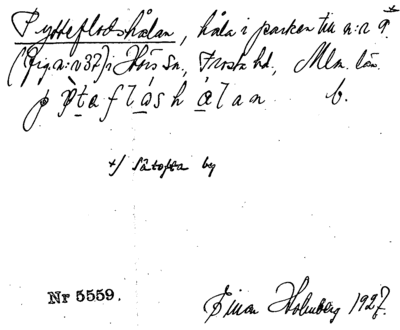 Pytteflodshålan, håla i parken till n:r 9 x
(fig. n:r 37) i Hörs sn, Frosta hd, Mlm. län.
p p̀ t a f l ǻ s h å̀ l a n b.
x/ Sätofta by
Nr 5559.
Einar Holmberg 1927.